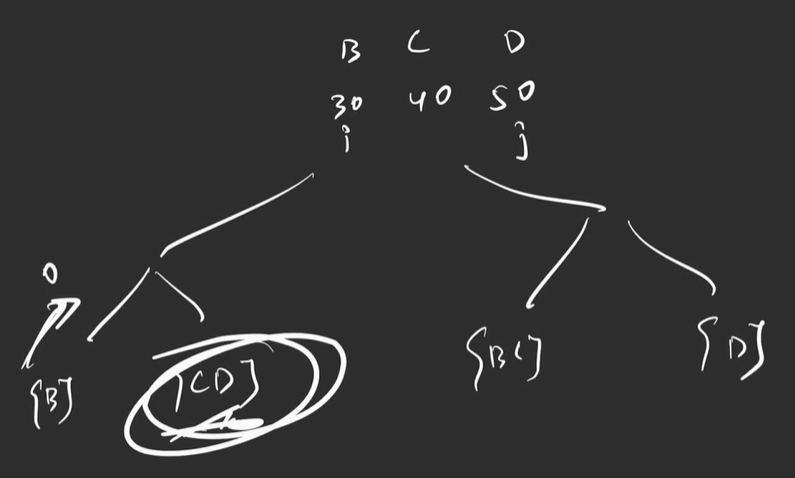 B C D
30 40 50
i j
0
{B] [CD] {BC] {D]